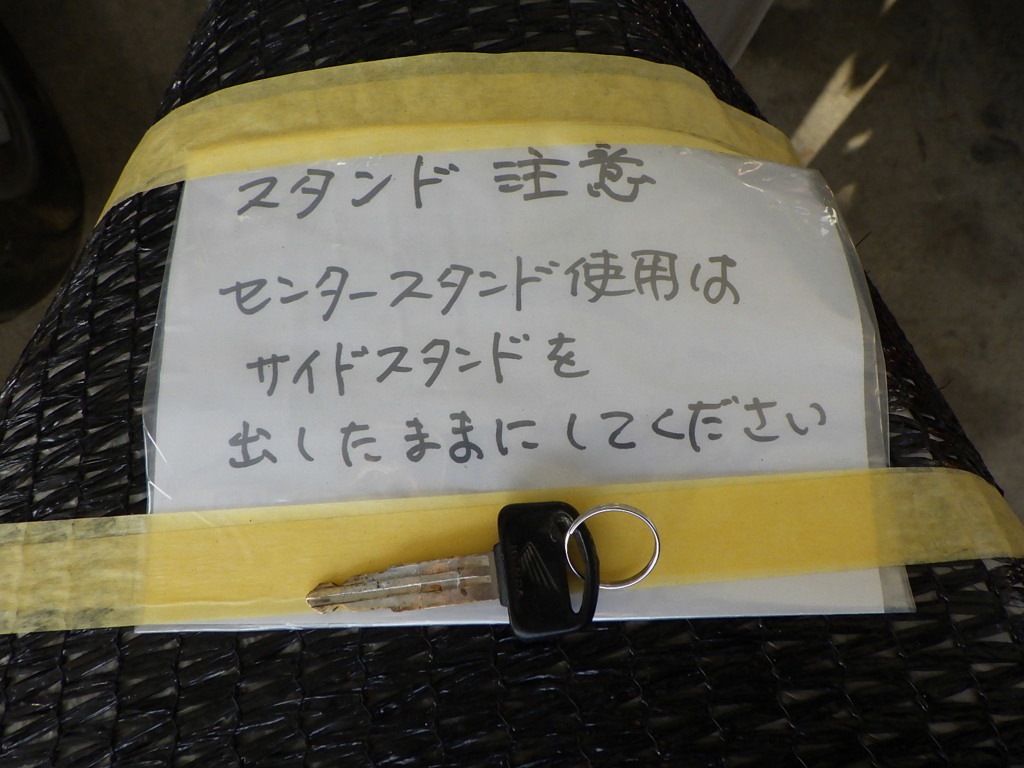 スタンド 注意
センタースタンド使用は
サイドスタンドを
出したままにしてください